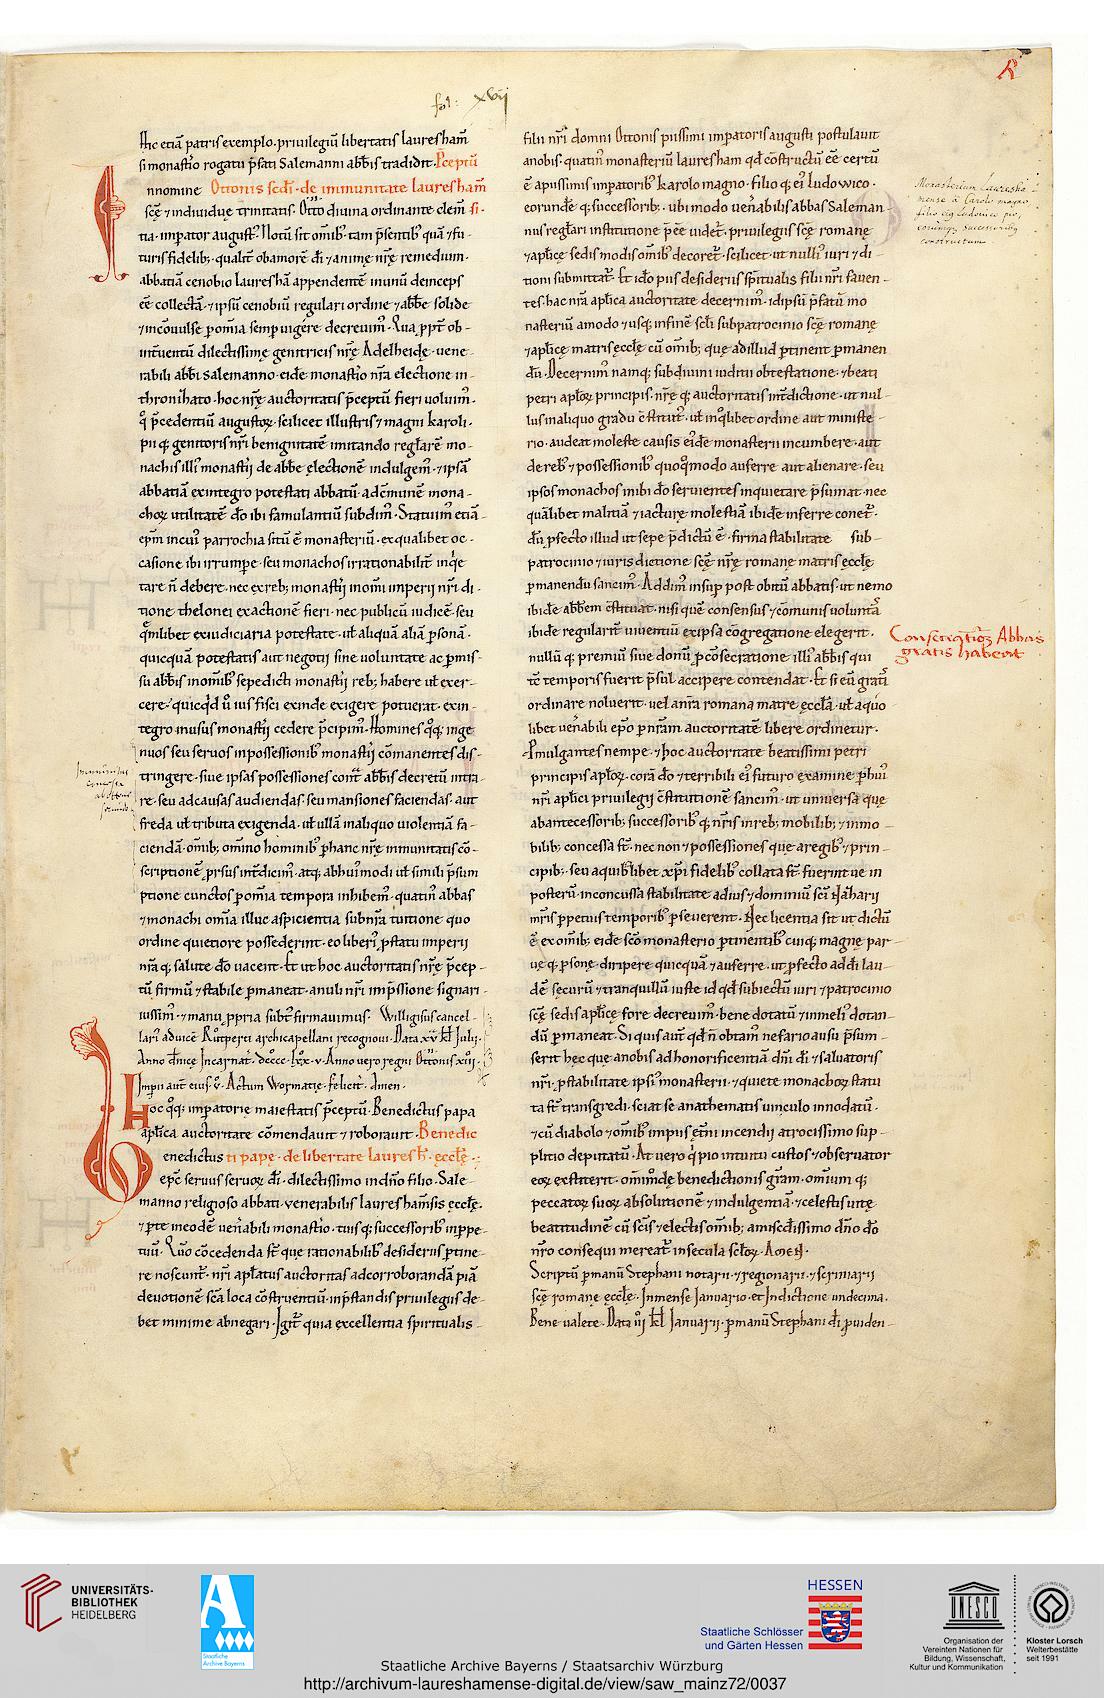 R
fol: xvij
Hic etiā patris exemplo. privilegiū libertatis lauresham̄
si monast̄io rogatu p̄fati Salemanni abb̄is tradidit. P̄ceptū
nnomine Ottonis sc̄di. de immunitate lauresham̄
sc̄ę & individuę trinitatis. Otto divina ordinante clem̄ti-
tia. imp̄ator august᷒. Notū sit om̄ib᷒ tam p̄sentib᷒ quā & fu-
turis fidelib;. qualit̄ ob amorē d̄i & animę nr̄ę remedium.
abbatiā cenobio laureshā appendentē in unū deinceps
ēē collectā. & ipsū cenobiū regulari ordine & abb̄e solide
& inc̄ōvulse p̄ om̄ia semp̄ vigere decrevim᷒. Qua p̄pt̄ ob-
int̄ventū dilectissimę genitricis nr̄ę Adelheidę. vene-
rabili abb̄i Salemanno. eidē monast̄io nr̄a electione in-
thronizato. hoc nr̄ę auctoritatis p̄ceptū fieri voluim᷒.
pii q; genitoris nr̄i benignitatē imitando reglārē mo-
nachis illi᷒ monast̄ij de abb̄e ęlectionē indulgem᷒. & ipsā
abbatiā ex integro potestati abbatū. ad c̄mūnē mona-
choꝝ utilitatē d̄o ibi famulantiū subdim᷒. Statuim᷒ etiā-
ep̄m in cui᷒ parrochia sitū ē monasteriū. ex qualibet oc-
casione ibi irrumpe. seu monachos irrationabilit̄ inq̇e
tare n̄ debere. nec ex reb; monast̄ij in om̄i imperii nr̄i di-
tione thelonei exactionē fieri. nec publicū iudicē. seu
quicquā potestatis aut negotii sine voluntate ac p̄mis-
su abb̄is in om̄ib᷒ sepedicti monast̄ij reb; habere ut̄ exer-
tegro in usus monast̄ij cedere p̄cipim᷒. Homines q̊q; inge
nuos seu servos in possessionib᷒ monast̄ij cōmanentes dis-
tringere. sive ipsas possessiones cont̄ abb̄is decretū intra-
re. seu ad causas audiendas. seu mansiones faciendas. aut
freda ut̄ tributa exigenda. ut̄ ullā in aliquo violentiā fa-
ciendā. om̄ib; om̄ino hominib᷒ p̄ hanc nr̄ę inmunitatis cō-
scriptionē p̄rsus int̄dicim᷒. atq; ab hui᷒ modi ut̄ simili p̄sum
ptione cunctos p̄ om̄ia tempora inhibem᷒. quatin᷒ abbas
& monachi om̄ia illuc aspicientia sub nr̄a tuitione quo
ordine quietiore possederint. eo liberi᷒ p̄ statu imperii
nr̄a q; salute d̄o vacent. Et ut hoc auctoritatis nr̄ę p̄cep-
tū firmiū & stabile p̄maneat. anuli nr̄i imp̄ssione signari
iussim᷒. & manu p̄pria subt̄ firmavimus. Willigisus cancel-
lari᷒ ad vicē Růtperti archicapellani recognovi. Data xv kl̄ Julij.
Anno d̄nicę Incarnat̄. dcccc. lxx. v. Anno vero regni Ottonis xiiij.
Imp̄ii aut̄ eius. v̊. Actum Wormatię. felicit̄. Amen.
Hoc q̊q; imp̄atorię maiestatis p̄ceptū. Benedictus papa
ap̄lica auctoritate cōmendavit & roboravit. Benedic
enedictus ti papę. de libertate lauresh̄. ęccl̄ę.
ep̄c servus servoꝝ d̄i. dilectissimo in dn̄o filio. Sale-
manno religioso abbati. venerabilis laureshām̄sis ęccl̄ę.
& p̄ te in eodē ven̄abili monast̄io. tuis q; successorib᷒ in p̄pe-
tuū. Quō cōcedenda st̄ que rationabilib᷒ desideriis p̄tine-
re noscunt̄. nr̄i ap̄latus auctoritas ad corroborandā piā
devotionē sc̄a loca cōstruentiū. in p̄standis privilegiis de-
bet minime abnegari. Igit̄ quia excellentia spiritualis
filii nr̄i domni Ottonis piissimi imp̄atoris augusti postulavit
a nobis. quatin᷒ monasteriū lauresham qd̄ cōstructū ēē certū
ē a piissimis imp̄atorib᷒ karolo magno. filio q; ei᷒ Ludowico.
eorundē q; successorib;. ubi modo ven̄abilis abbas Saleman-
nus reglāri institutione p̄ēē videt̄. privilegiis sc̄ę romanę
& ap̄licę sedis modis om̄ib᷒ decoret̄. scilicet ut nulli᷒ iuri & di-
tioni submittat̄. Et id̄o piis desideriis sp̄iritualis filii nr̄i faven-
tes. hac nr̄a ap̄lica auctoritate decernim᷒. id ipsū p̄fatū mo
nasteriū amodo & usq; in finē scl̄i sub patrocinio sc̄ę romanę
& ap̄licę matris ęccl̄ę cū om̄ib; quę ad illud p̄tinent p̄manen
dū. Decernim᷒ namq; sub divini iuditii obtestatione. & beati
petri ap̄loꝝ principis. nr̄ę q; auctoritatis int̄dictione. ut nul-
lus in aliquo gradu c̄stitut᷒. ut̄ in q̊libet ordine aut ministe-
rio. audeat moleste causis ei᷒dē monasterii incumbere. aut
de reb᷒ & possessionib᷒ quoq̊modo auferre aut alienare. seu
ipsos monachos inibi d̄o servientes inquietare p̄sumat. nec
quālibet malitiā & iacturę molestiā ibidē inferre conet̄.
dū p̄fecto illud ut sepe p̄dictū ē. firma stabilitate sub-
patrocinio & iuris dictione sc̄ę nr̄ę romanę matris ęccl̄ę
p̄manendū sancim᷒. Addim᷒ insup̄ post obitū abbatis. ut nemo
ibidē abb̄em c̄stituat. nisi quē consensus & cōmunis volunt̄a
ibidē regularit̄ viventiū ex ipsa cōgregatione elegerit.
nullū q; premiū sive donū p̄ cōsecratione illi᷒ abb̄is qui
t̄c temporis fuerit p̄sul accipere contendat. Et si eū grat̄i
ordinare noluerit. vel a nr̄a romana matre ęccl̄a. ut̄ a quo
libet ven̄abili ep̄o p̄ nr̄am auctoritatē libere ordinetur.
P̄mulgantes nempe & hoc auctoritate beatissimi petri
principis ap̄loꝝ. corā d̄o & terribili ei᷒ futuro examine p̄ hui᷒
nr̄i ap̄lici privilegii c̄stitutionē sancim᷒. ut universa quę
ab antecessorib; successorib᷒ q; nr̄is in reb; mobilib; & inmo-
bilib; concessa st̄. nec non & possessiones que a regib᷒ & prin-
cipib;. seu a quib᷒libet xp̄i fidelib᷒ collata st̄. fuerint ve in
posterū. inconcussa stabilitate ad ius & dominiū sc̄i Nazarii
mr̄is p̄petuis temporib᷒ p̄severent. Nec licentia sit ut dictū
ē ex om̄ib; eidē sc̄o monasterio p̄tinentib᷒ cuiq; magnę par-
vę q; p̄sonę diripere quicquā & auferre. ut p̄fecto ad d̄i lau-
dē securū & tranquillū iuste id qd̄ subiectū iuri & patrocinio
sc̄ę sedis ap̄licę fore decrevim᷒. bene dotatū & in meli᷒ dotan-
dū p̄maneat. Si quis aut̄ qd̄ n̄ obtam᷒ nefario ausu p̄sum-
serit hęc que a nobis ad honorificentiā dn̄i d̄i & salvatoris
nr̄i. p̄ stabilitate ipsi᷒ monasterii. & quiete monachoꝝ statu
ta st̄ transgredi. sciat se anathematis vinculo innodatū.
& cū diabolo & om̄ib᷒ impiis ęt̄ni incendii atrocissimo sup-
plitio deputatū. At vero q̇ pio intuitu custos & observator
eoꝝ extiterit. om̄imodę benedictionis grām. om̄ium q;
peccatoꝝ suoꝝ absolutionē & indulgentiā. & cęlestis vitę
beatitudinē cū sc̄is & electis om̄ib; a miscd̄issimo dn̄o d̄o
nr̄o consequi mereat̄ in secula scl̄oꝝ. Amen.
Scriptū p̄ manū Stephani notarii. & regionarii. & scriniarii
sc̄ę romanę ęccl̄ę. In mense Januario. et Indictione undecima.
Bene valete. Data iiij kl̄ Januarij. p̄ manū Stephani d̄i p̄viden-
Monasterium Laurisha-
mense à Carolo magno
filio eiq Ludovico pio,
eorumq; successoribq
constructum
Consecrationē Abbas
gratis habent
UNIVERSITÄTS-
BIBLIOTHEK
HEIDELBERG
Staatliche
Archive Bayerns
HESSEN
Staatliche Schlösser
und Gärten Hessen
UNESCO
Organisation der
Vereinten Nationen für
Bildung, Wissenschaft,
Kultur und Kommunikation
Kloster Lorsch
Welterbestätte
seit 1991
Staatliche Archive Bayerns / Staatsarchiv Würzburg
http://archivum-laureshamense-digital.de/view/saw_mainz72/0037